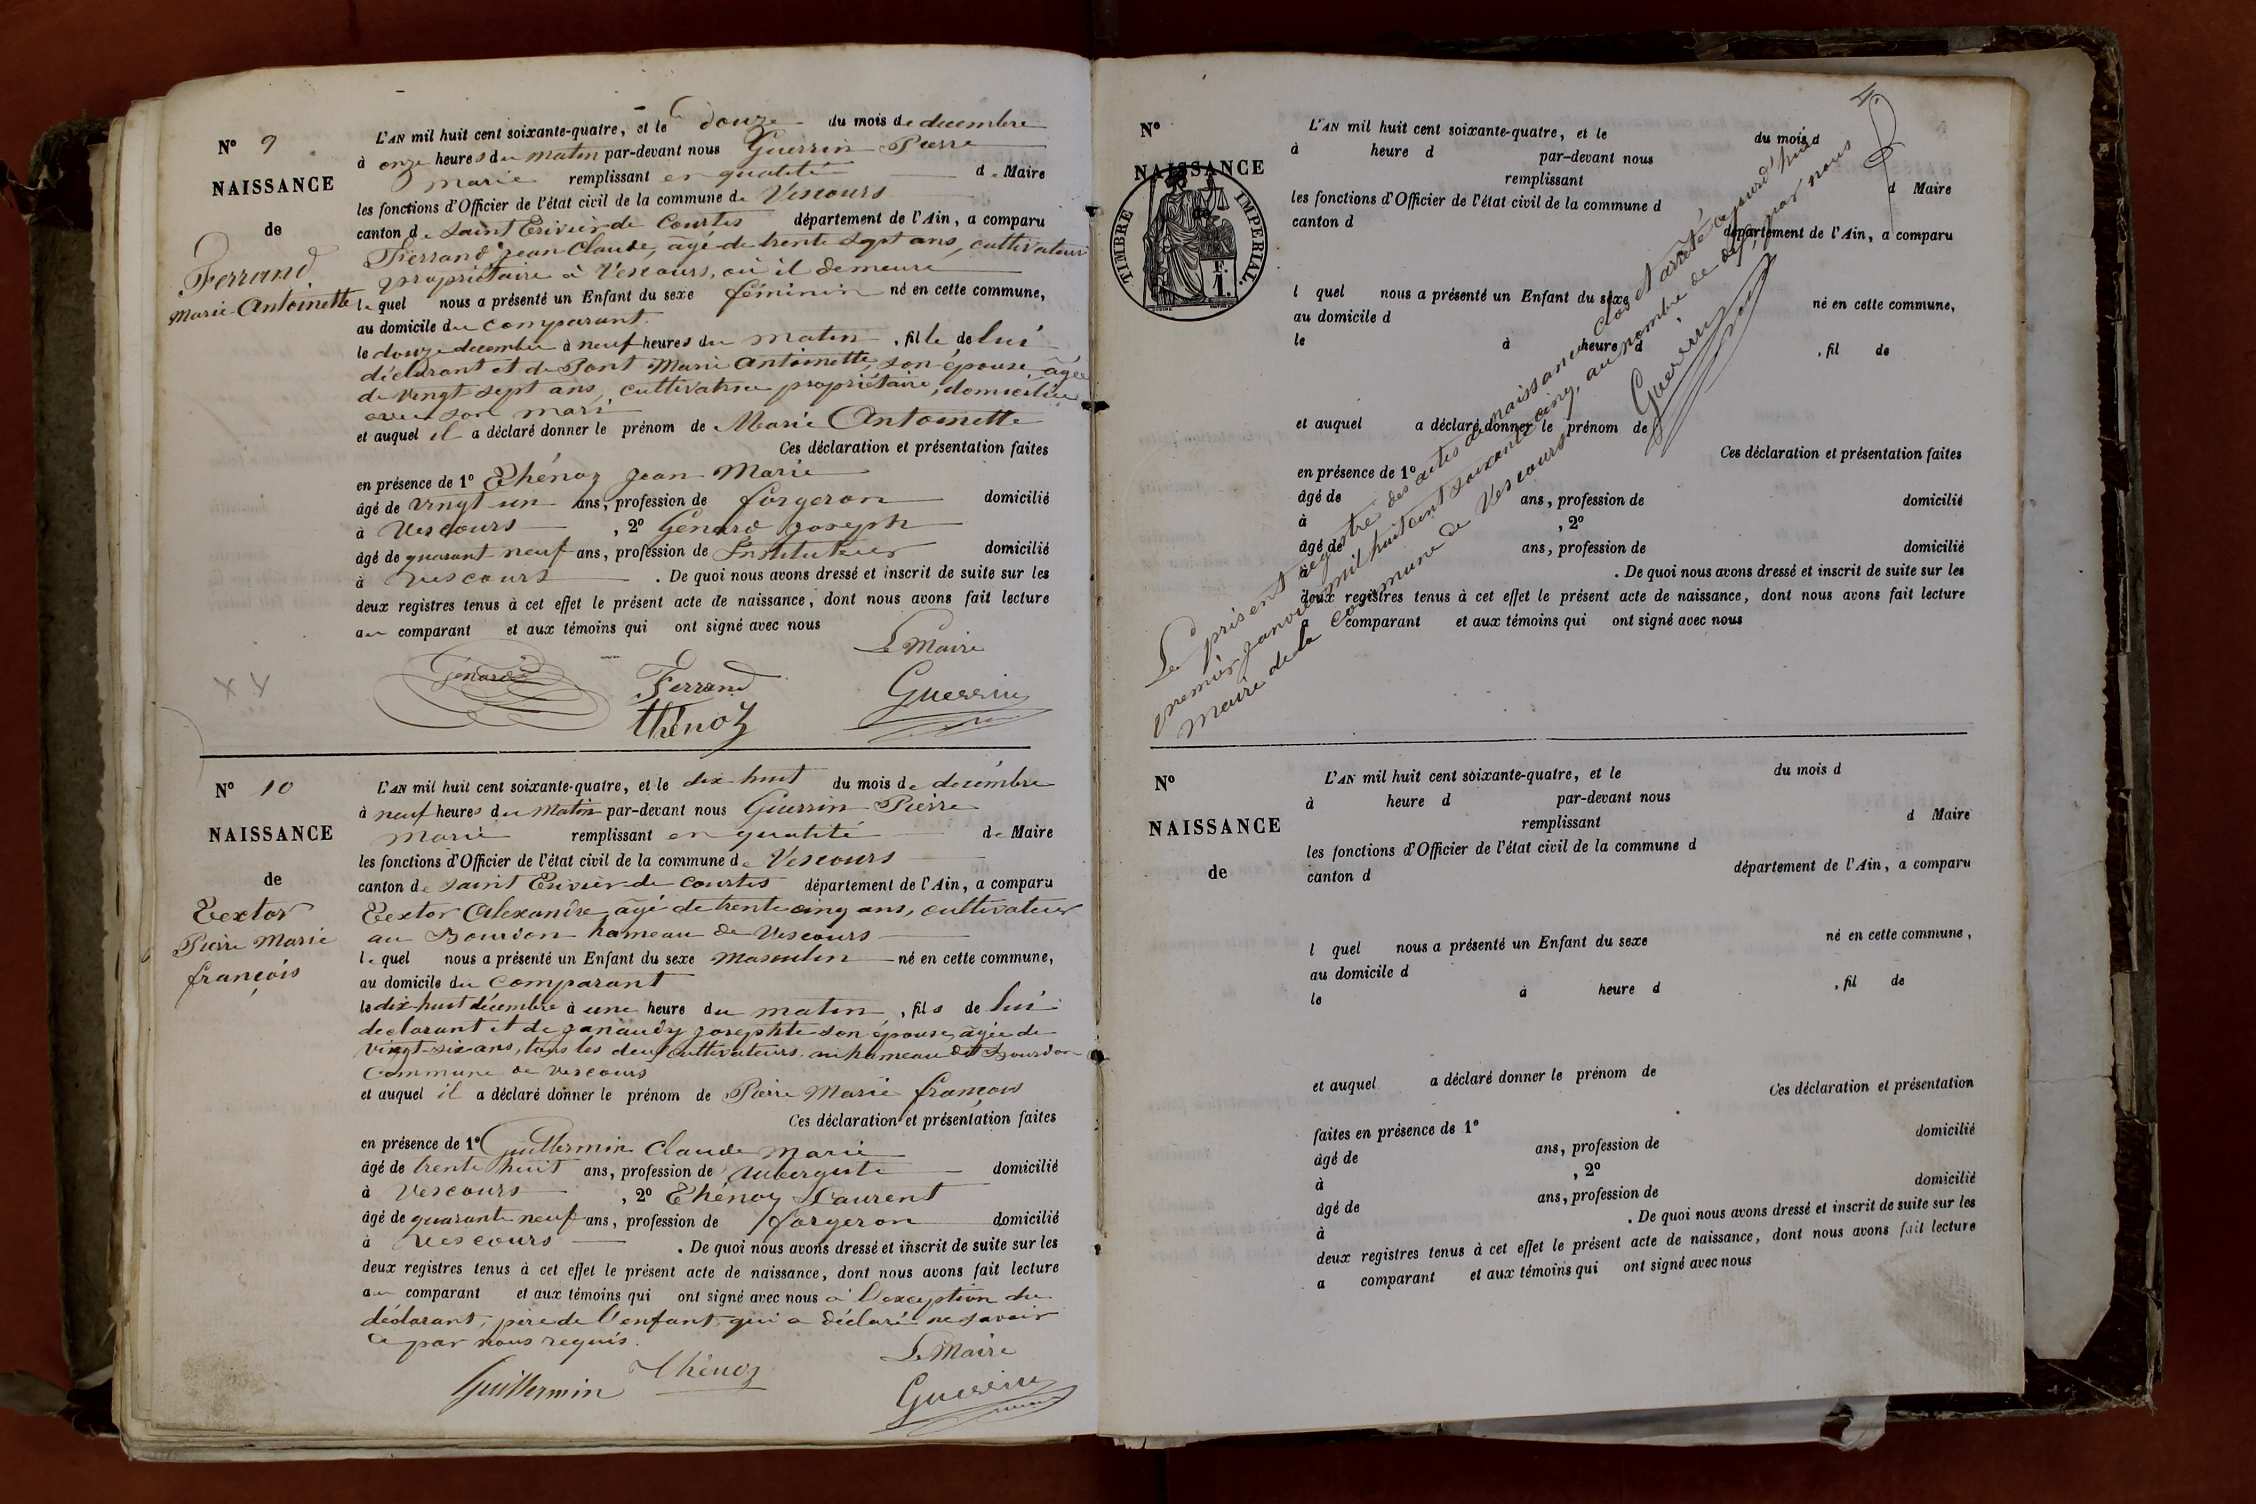 N° 9
NAISSANCE
de
Ferrand
Marie-Antoinette
L'AN mil huit cent soixante-quatre, et le douze du mois de decembre
à onze heures du matin par-devant nous Guerrin Pierre
Marie remplissant en qualité de Maire
les fonctions d'Officier de l'état civil de la commune de Vescours
canton de Saint Trivier de Courtes département de l'Ain, a comparu
Ferrand Jean Claude, âgé de trente sept ans, cultivateur
propriétaire à Vescours, où il demeure
lequel nous a présenté un Enfant du sexe féminin né en cette commune,
au domicile du comparant
le douze decembre à neuf heures du matin, fille de lui
déclarant et de Pont Marie Antoinette, son épouse, âgée
de vingt sept ans, cultivatrice propriétaire, domiciliée
avec son mari
et auquel il a déclaré donner le prénom de Marie Antoinette
Ces déclaration et présentation faites
en présence de 1° Thénoz Jean Marie
âgé de vingt un ans, profession de forgeron domicilié
à Vescours, 2° Genard Joseph
âgé de quarant neuf ans, profession de Instituteur domicilié
à Vescours. De quoi nous avons dressé et inscrit de suite sur les
deux registres tenus à cet effet le présent acte de naissance, dont nous avons fait lecture
au comparant et aux témoins qui ont signé avec nous
Le Maire
Genard Ferrand Guerrin
thénoz
N° 10
NAISSANCE
de
Textor
Pierre Marie
françois
L'AN mil huit cent soixante-quatre, et le dix huit du mois de decembre
à neuf heures du matin par-devant nous Guerrin Pierre
Marie remplissant en qualité de Maire
les fonctions d'Officier de l'état civil de la commune de Vescours
canton de Saint Trivier de Courtes département de l'Ain, a comparu
Textor Alexandre, âgé de trente cinq ans, cultivateur
au Bourdon hameau de Vescours
lequel nous a présenté un Enfant du sexe Masculin né en cette commune,
au domicile du comparant
le dix-huit décembre à une heure du matin, fils de lui
declarant et de Janaudy Josephte son épouse, âgée de
vingt-six ans, tous les deux cultivateurs au hameau du Bourdon
Commune de Vescours
et auquel il a déclaré donner le prénom de Pierre Marie françois
Ces déclaration et présentation faites
en présence de 1° Guillermin Claude Marie
âgé de trente huit ans, profession de Aubergiste domicilié
à Vescours, 2° Thénoz Laurent
âgé de quarante neuf ans, profession de forgeron domicilié
à Vescours. De quoi nous avons dressé et inscrit de suite sur les
deux registres tenus à cet effet le présent acte de naissance, dont nous avons fait lecture
au comparant et aux témoins qui ont signé avec nous à l'exception du
déclarant, père de l'enfant, qui a déclaré ne savoir
ce par nous requis.
Le Maire
Guillermin Thénoz Guerrin
N°
NAISSANCE
de
TIMBRE IMPERIAL.
1 F.
L'AN mil huit cent soixante-quatre, et le du mois d
à heure d par-devant nous
remplissant d Maire
les fonctions d'Officier de l'état civil de la commune d
canton d département de l'Ain, a comparu
l quel nous a présenté un Enfant du sexe né en cette commune,
au domicile d
le à heure d, fil de
et auquel a déclaré donner le prénom de
Ces déclaration et présentation faites
en présence de 1°
âgé de ans, profession de domicilié
à, 2°
âgé de ans, profession de domicilié
à. De quoi nous avons dressé et inscrit de suite sur les
deux registres tenus à cet effet le présent acte de naissance, dont nous avons fait lecture
a comparant et aux témoins qui ont signé avec nous
Le présent registre des actes de naissance clos et arrêté ajourd'hui
premier janvier mil huit cent soixante cinq, au nombre de dix, par nous
Maire de la Commune de Vescours
Guerrin
N°
NAISSANCE
de
L'AN mil huit cent soixante-quatre, et le du mois d
à heure d par-devant nous
remplissant d Maire
les fonctions d'Officier de l'état civil de la commune d
canton d département de l'Ain, a comparu
l quel nous a présenté un Enfant du sexe né en cette commune,
au domicile d
le à heure d, fil de
et auquel a déclaré donner le prénom de
Ces déclaration et présentation
faites en présence de 1°
âgé de ans, profession de domicilié
à, 2°
âgé de ans, profession de domicilié
à. De quoi nous avons dressé et inscrit de suite sur les
deux registres tenus à cet effet le présent acte de naissance, dont nous avons fait lecture
a comparant et aux témoins qui ont signé avec nous